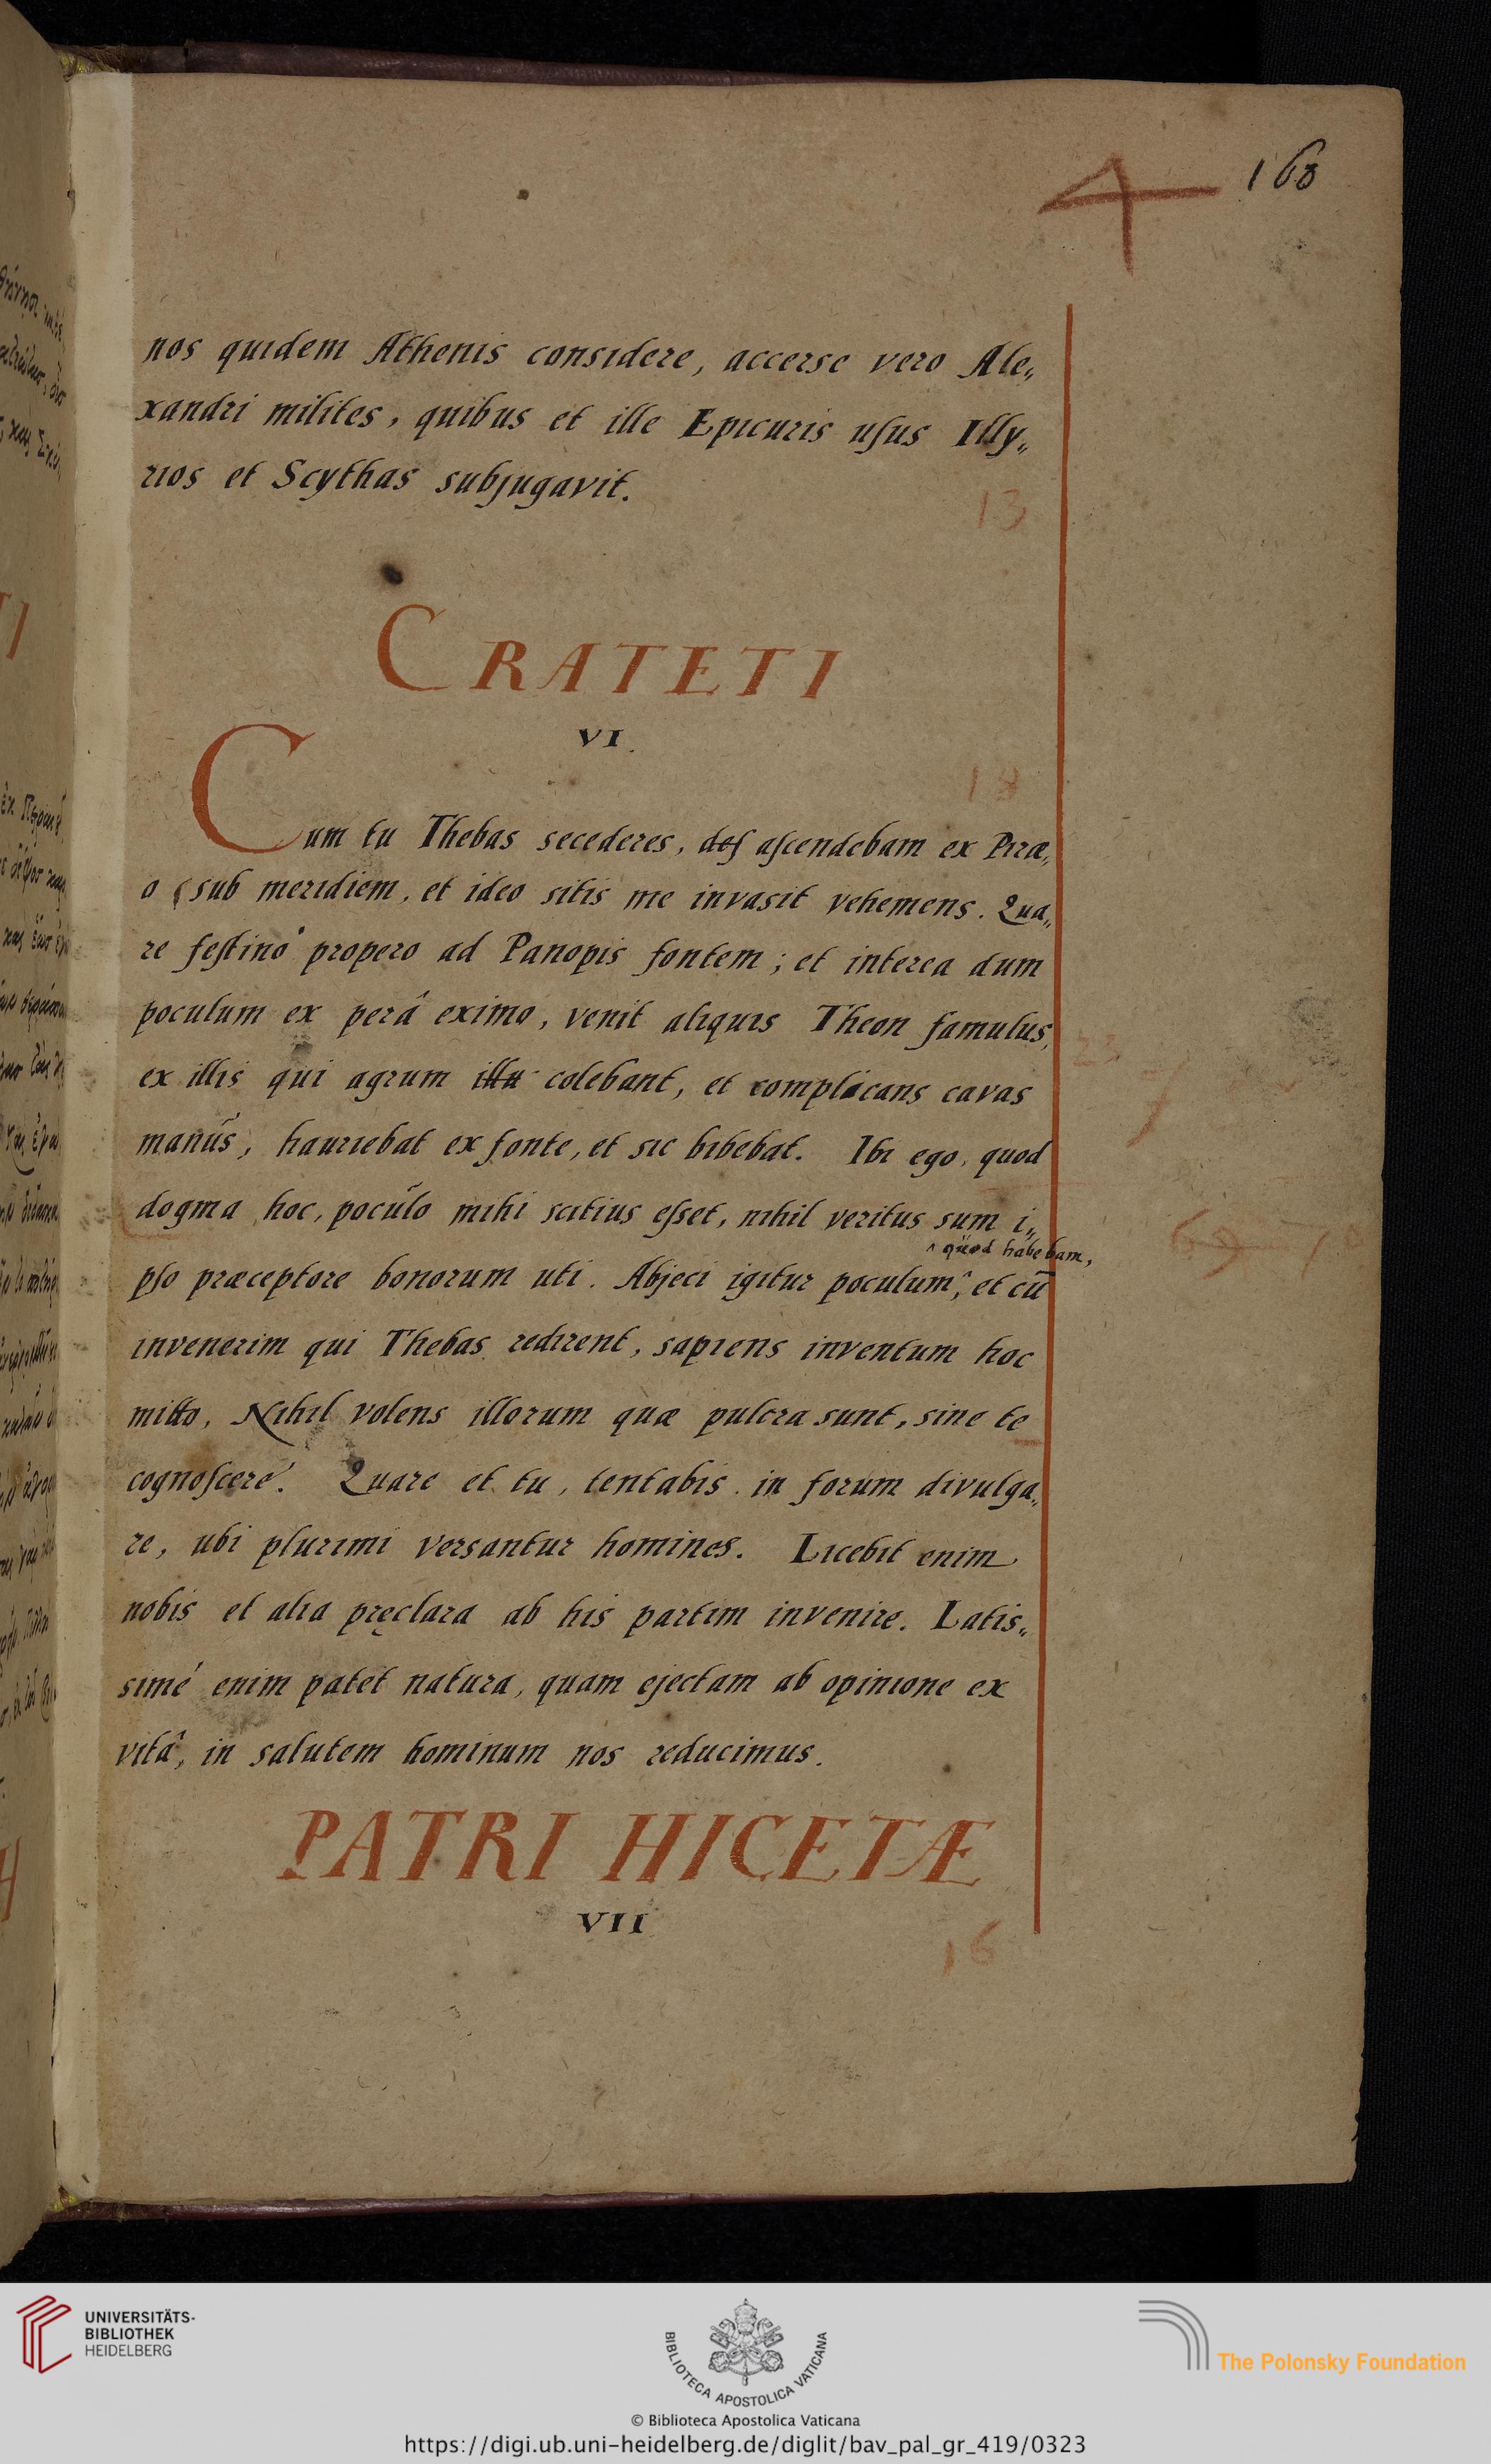 4 168
nos quidem Athenis considere, accerse vero Ale„
xandri milites, quibus et ille Epicuris uſus Illy„
rios et Scythas subjugavit.
13
CRATETI
VI.
18
Cum tu Thebas secederes, deſ aſcendebam ex Piræ„
o sub meridiem, et ideo sitis me invasit vehemens. Qua„
re feſtino propero ad Panopis fontem; et interea dum
poculum ex perâ eximo, venit aliquis Theon famulus,
ex illis qui agrum illu colebant, et complicans cavas
manus, hauriebat ex fonte, et sic bibebat. Ibi ego, quod
dogma hoc, poculo mihi scitius eſset, nihil veritus sum i„
^ quod habebam,
pſo præceptore bonorum uti. Abjeci igitur poculum^, et cū
invenerim qui Thebas redirent, sapiens inventum hoc
mitto, Nihil volens illorum quæ pulcra sunt, sine te
cognoſcere. Quare et tu, tentabis in forum divulga„
re, ubi plurimi versantur homines. Licebit enim
nobis et alia pręclara ab his partim invenire. Latis„
simé enim patet natura, quam ejectam ab opinione ex
vitâ, in salutem hominum nos reducimus.
PATRI HICETÆ
VII
16
UNIVERSITÄTS-
BIBLIOTHEK
HEIDELBERG
BIBLIOTECA APOSTOLICA VATICANA
The Polonsky Foundation
© Biblioteca Apostolica Vaticana
https://digi.ub.uni-heidelberg.de/diglit/bav_pal_gr_419/0323